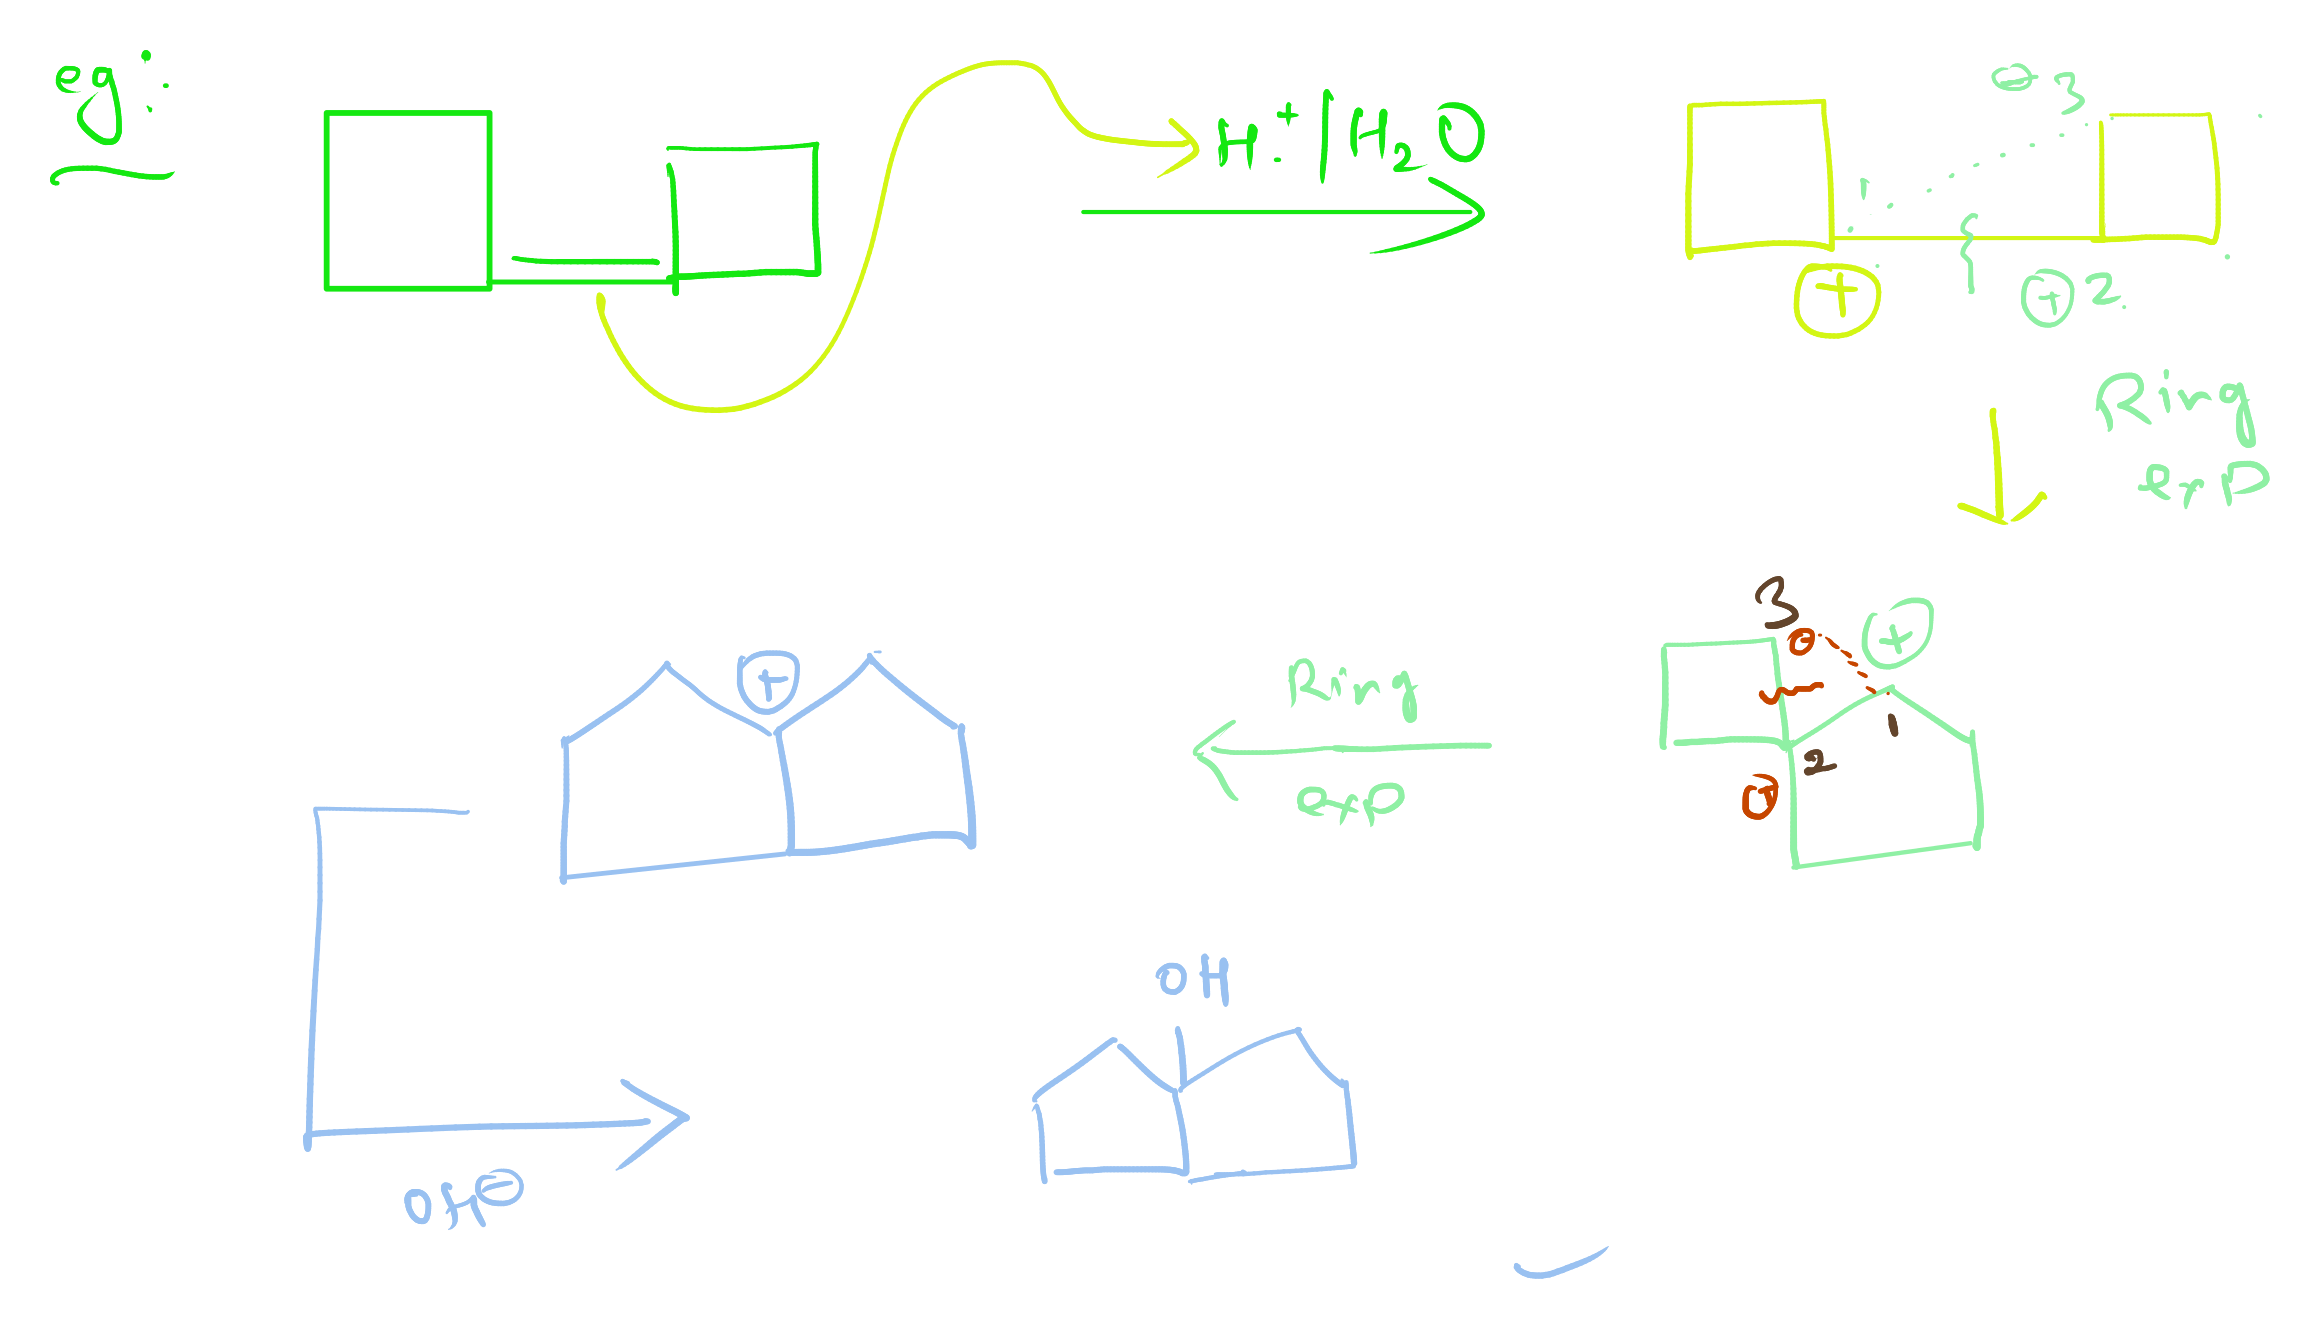 eg:
H⁺/H₂O
⊖ 3
1
⊕
⊕ 2
Ring
exp
3
⊕
1
2
⊕
Ring
exp
OH
OH⊖